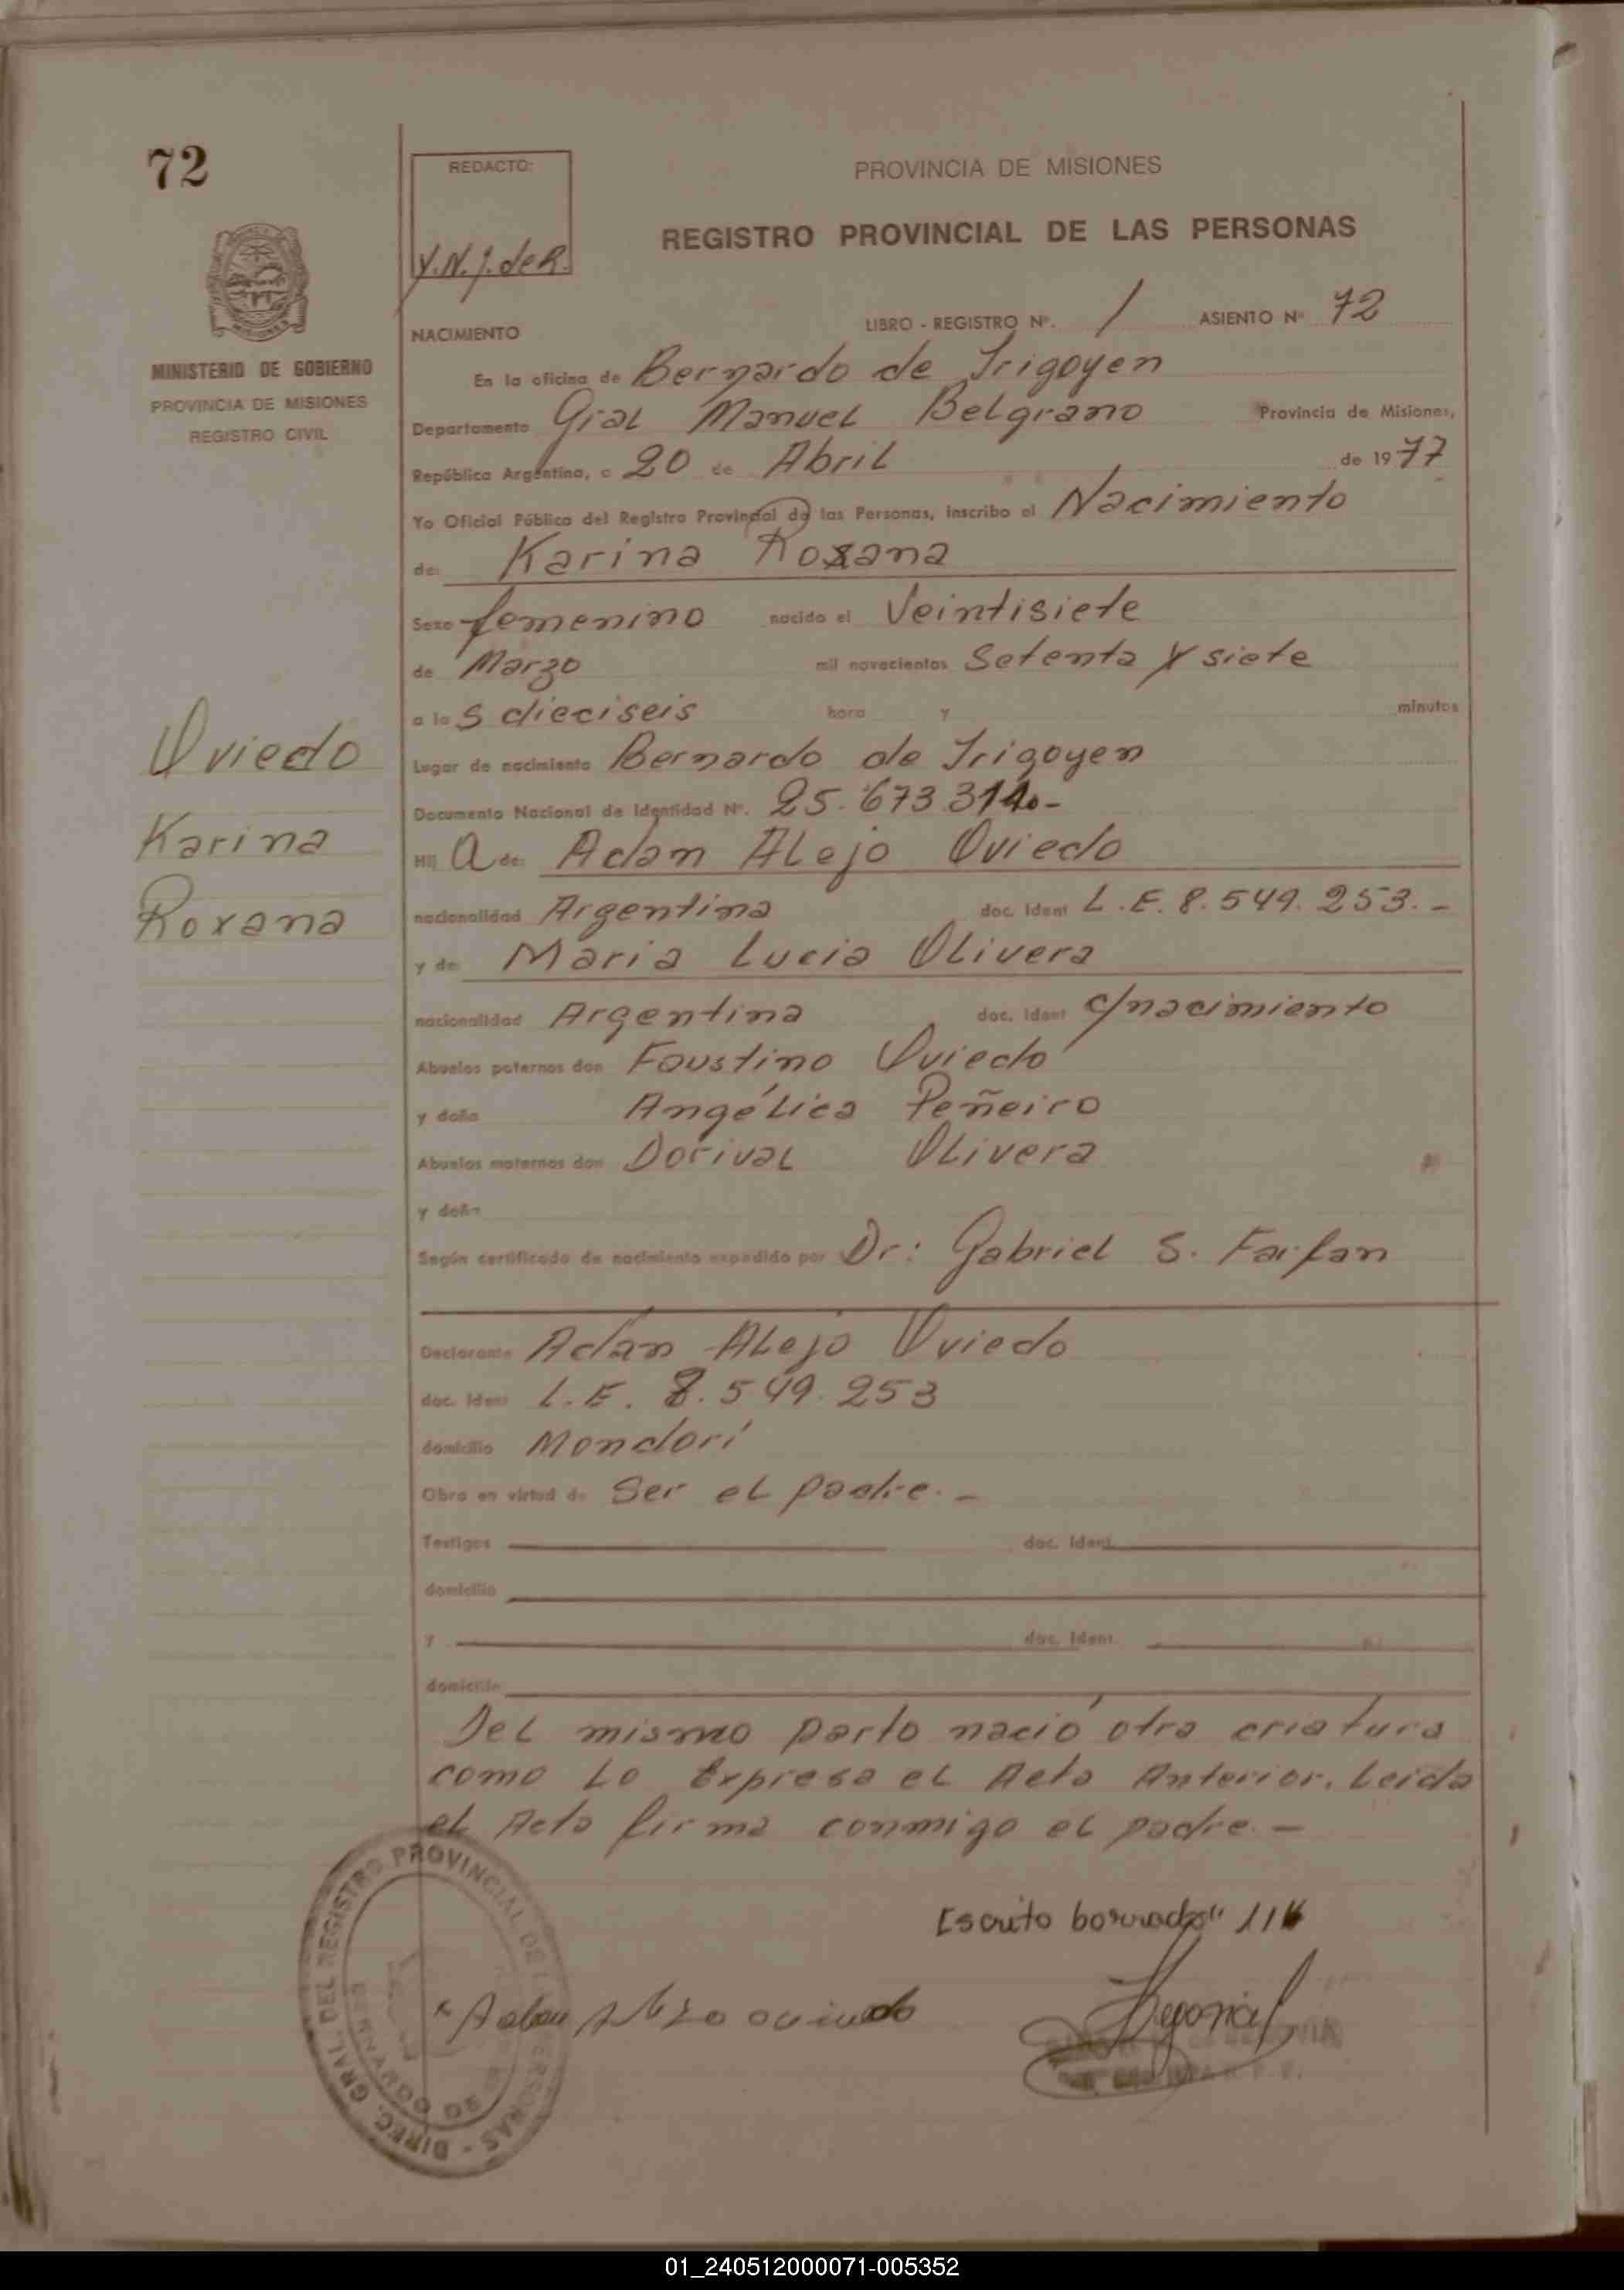 72
REDACTO:
Y.N.J. de R.
PROVINCIA DE MISIONES
REGISTRO PROVINCIAL DE LAS PERSONAS
NACIMIENTO
LIBRO - REGISTRO Nº. 1 ASIENTO Nº 72
MINISTERIO DE GOBIERNO
PROVINCIA DE MISIONES
REGISTRO CIVIL
En la oficina de Bernardo de Irigoyen
Departamento Gral Manuel Belgrano Provincia de Misiones,
República Argentina, a 20 de Abril de 1977
Yo Oficial Público del Registro Provincial de las Personas, inscribo el Nacimiento
de: Karina Roxana
Sexo femenino nacido el Veintisiete
de Marzo mil novecientos Setenta y siete
a las dieciseis hora y minutos
Oviedo
Karina
Roxana
Lugar de nacimiento Bernardo de Irigoyen
Documento Nacional de Identidad Nº. 25.673.314.-
Hij a de: Adan Alejo Oviedo
nacionalidad Argentina doc. Ident L.E. 8.549.253.-
y de Maria Lucia Olivera
nacionalidad Argentina doc. Ident c/nacimiento
Abuelos paternos don Faustino Oviedo
y doña Angélica Peñeiro
Abuelos maternos don Dorival Olivera
y doña
Según certificado de nacimiento expedido por Dr: Gabriel S. Farfan
Declarante Adán Alejo Oviedo
doc. Ident L.E. 8.549.253
domicilio Mondorí
Obra en virtud de Ser el padre.-
Testigos doc. Ident.
domicilio
y doc. Ident.
domicilio
Del mismo parto nació otra criatura
como lo Expresa el Acta Anterior. Leida
el Acta firma conmigo el padre.-
Escrito borrado"
DIREC. GRAL. DEL REGISTRO PROVINCIAL DE LAS PERSONAS
01_240512000071-005352